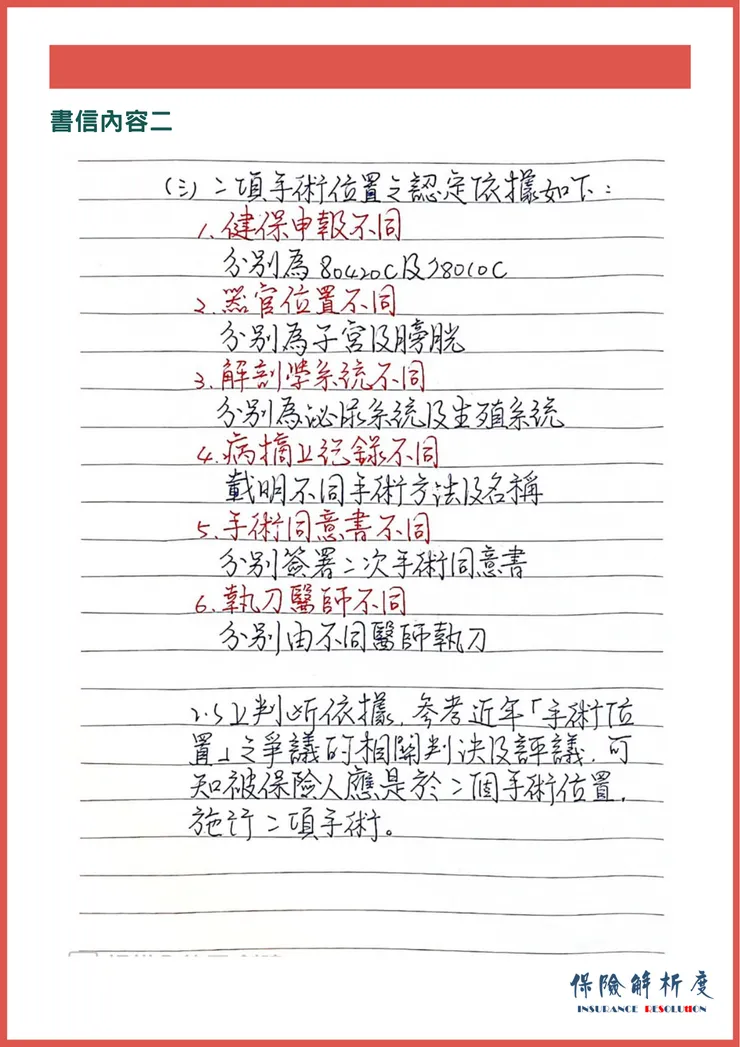 書信內容二
(三)二項手術位置之認定依據如下:
1.健保申報不同
分別為80420C及78010C
2.器官位置不同
分別為子宮及膀胱
3.解剖學系統不同
分別為泌尿系統及生殖系統
4.病摘上記錄不同
載明不同手術方法及名稱
5.手術同意書不同
分別簽署二次手術同意書
6.執刀醫師不同
分別由不同醫師執刀
以上判斷依據,參考近年「手術位
置」之爭議的相關判決及評議,可
知被保險人應是於二個手術位置,
施行二項手術。
保險解析度
INSURANCE RESOLUTION